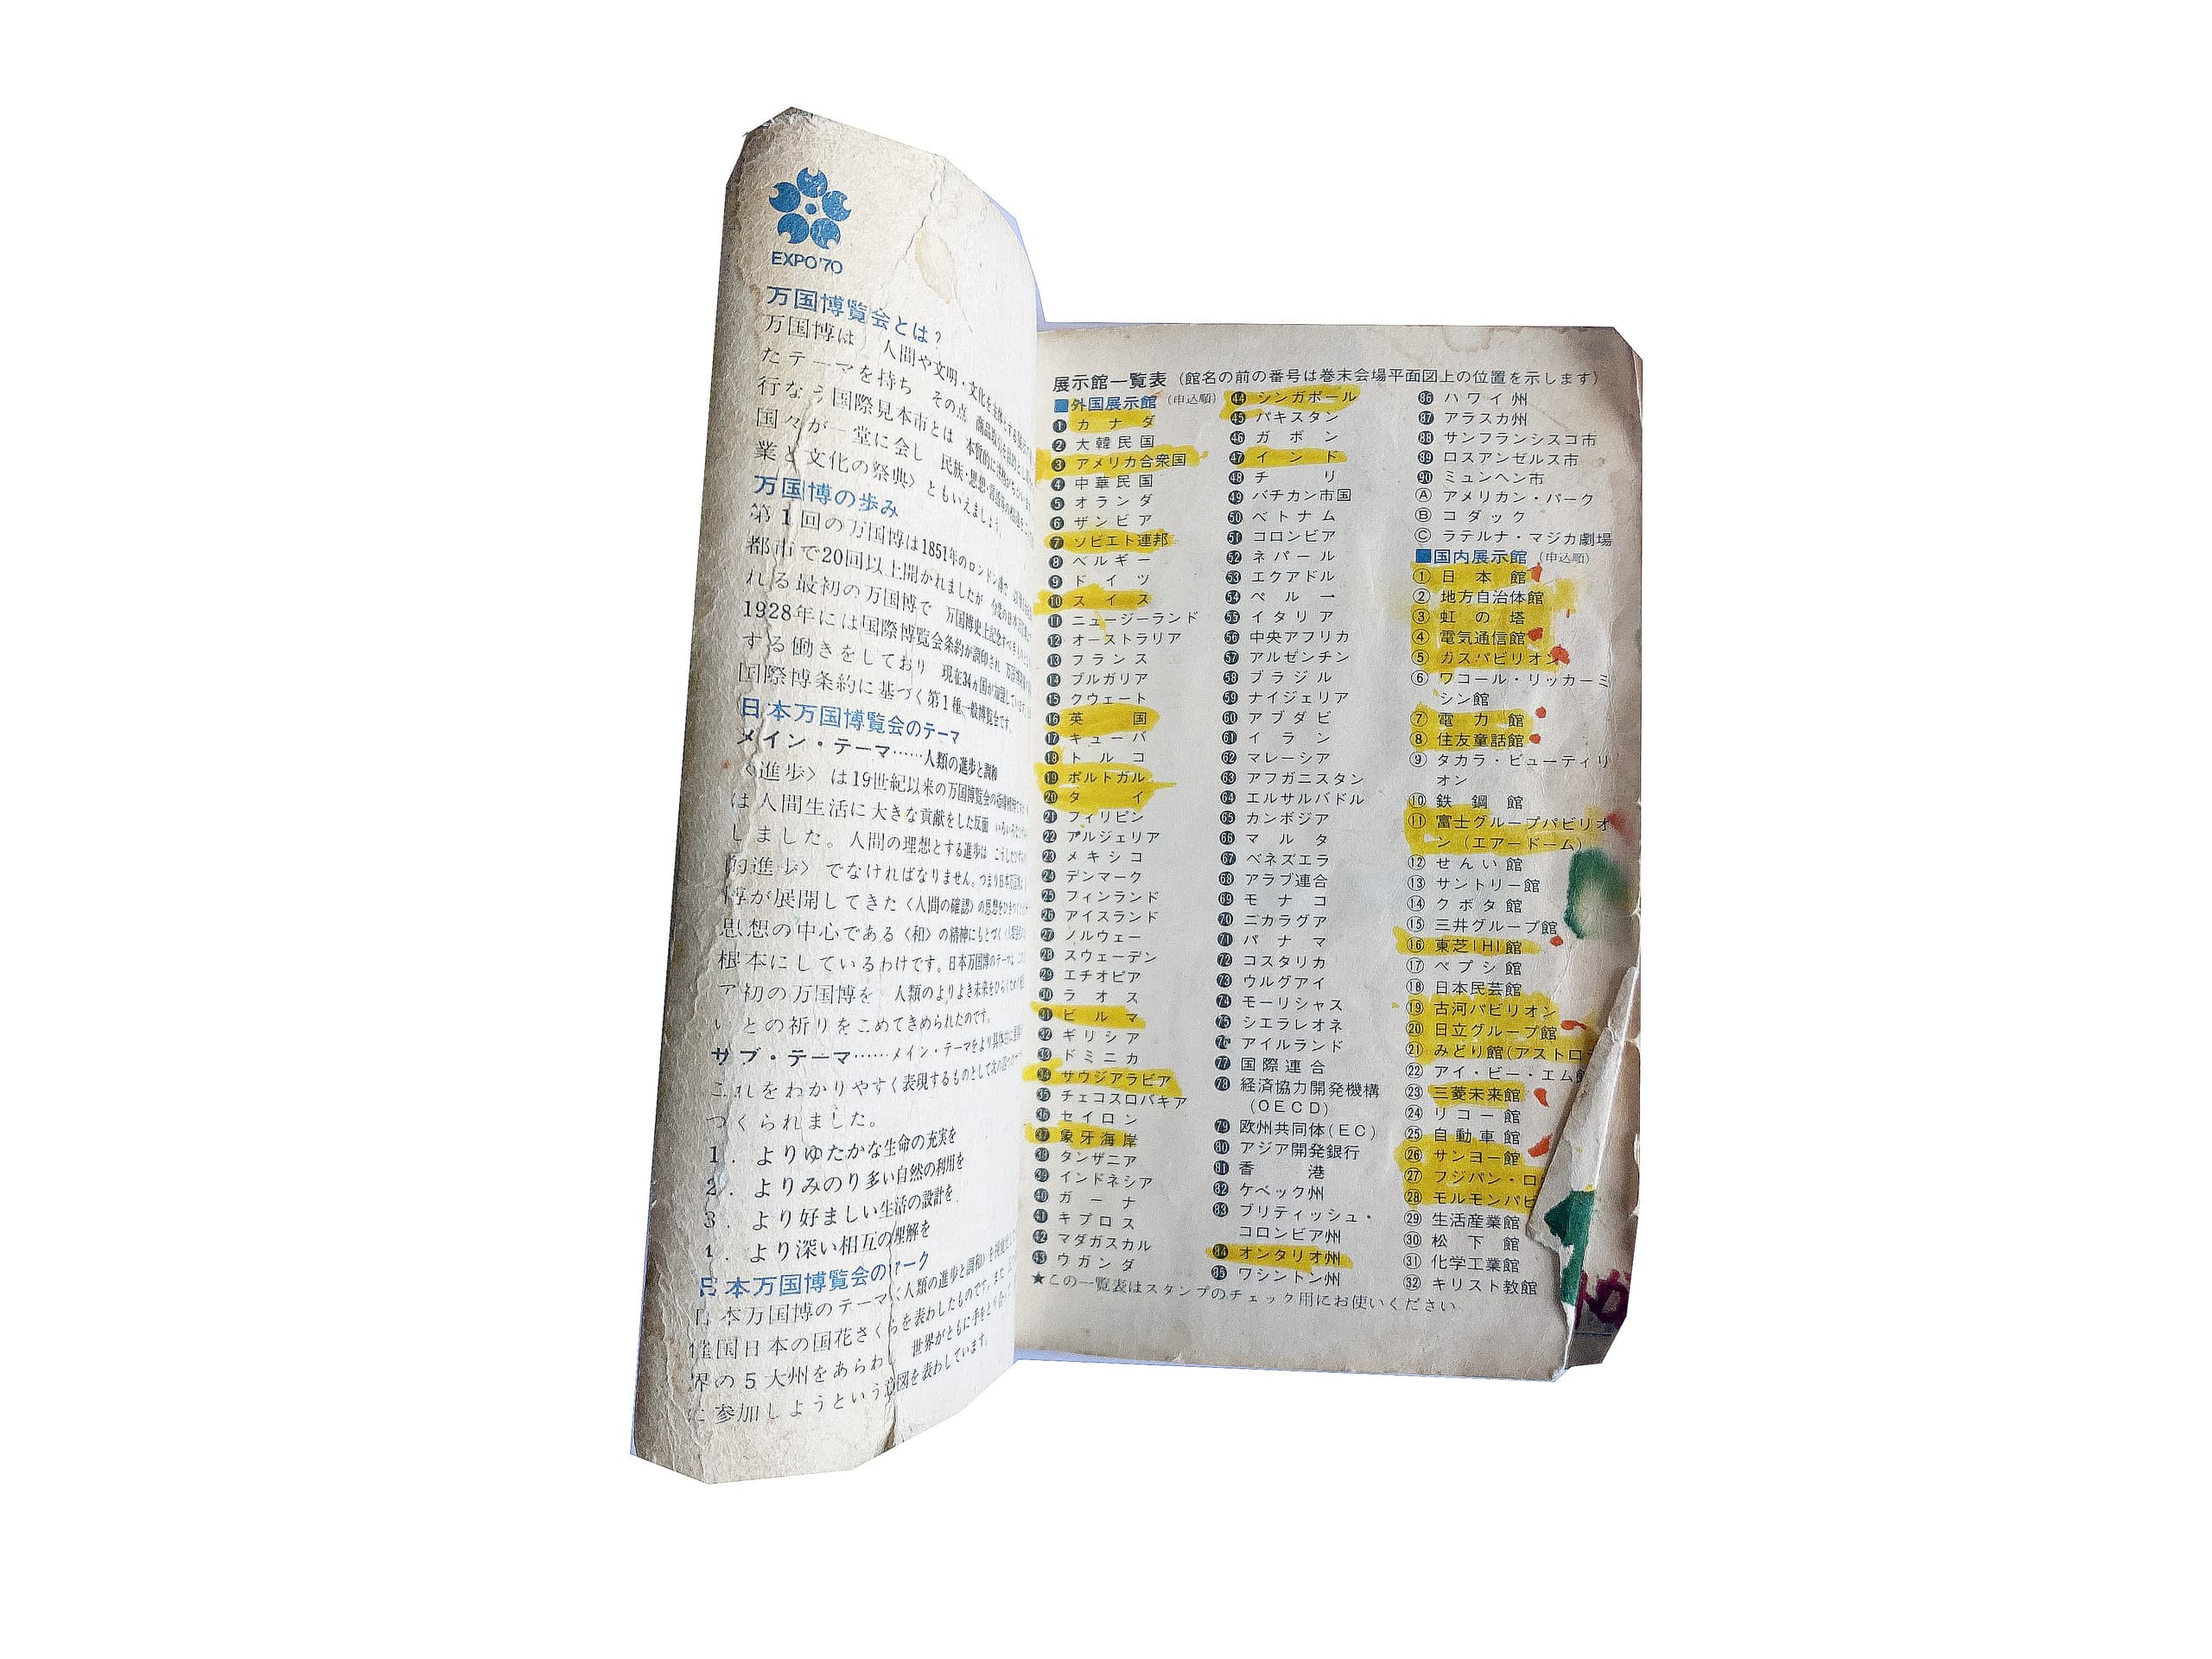 EXPO'70
万国博覧会とは？
万国博は 人間や文明・文化を
たテーマを持ち その点
行なう国際見本市とは 本質的に
国々が一堂に会し 民族・思想・
業と文化の祭典〉ともいえましょう
万国博の歩み
第1回の万国博は1851年のロンドン
都市で20回以上開かれましたが 今度の日本
れる最初の万国博で 万国博史上記念すべき
1928年には国際博覧会条約が調印され
する働きをしており 現在34ヵ国が加盟しています
国際博条約に基づく第1種一般博覧会です。
日本万国博覧会のテーマ
メイン・テーマ……人類の進歩と調和
〈進歩〉は19世紀以来の万国博覧会の
は人間生活に大きな貢献をした反面
しました。人間の理想とする進歩は
的進歩〉でなければなりません。つまり日本万国
博が展開してきた〈人間の確認〉の思想を
思想の中心である〈和〉の精神にもとづく
根本にしているわけです。日本万国博のテーマは
ア初の万国博を 人類のよりよき未来をひらく
いとの祈りをこめてきめられたのです。
サブ・テーマ……メイン・テーマをより具体的に
これをわかりやすく表現するものとして次の
つくられました。
1. よりゆたかな生命の充実を
2. よりみのり多い自然の利用を
3. より好ましい生活の設計を
4. より深い相互の理解を
日本万国博覧会のマーク
日本万国博のテーマ〈人類の進歩と調和〉を
催国日本の国花さくらを表わしたものです。また
界の5大州をあらわし 世界がともに手を
に参加しようという意図を表わしています。
展示館一覧表（館名の前の番号は巻末会場平面図上の位置を示します）
■外国展示館（申込順）
❶カナダ
❷大韓民国
❸アメリカ合衆国
❹中華民国
❺オランダ
❻ザンビア
❼ソビエト連邦
❽ベルギー
❾ドイツ
❿スイス
⓫ニュージーランド
⓬オーストラリア
⓭フランス
⓮ブルガリア
⓯クウェート
⓰英国
⓱キューバ
⓲トルコ
⓳ポルトガル
⓴タイ
21フィリピン
22アルジェリア
23メキシコ
24デンマーク
25フィンランド
26アイスランド
27ノルウェー
28スウェーデン
29エチオピア
30ラオス
31ビルマ
32ギリシア
33ドミニカ
34サウジアラビア
35チェコスロバキア
36セイロン
37象牙海岸
38タンザニア
39インドネシア
40ガーナ
41キプロス
42マダガスカル
43ウガンダ
44シンガポール
45パキスタン
46ガボン
47インド
48チリ
49バチカン市国
50ベトナム
51コロンビア
52ネパール
53エクアドル
54ペルー
55イタリア
56中央アフリカ
57アルゼンチン
58ブラジル
59ナイジェリア
60アブダビ
61イラン
62マレーシア
63アフガニスタン
64エルサルバドル
65カンボジア
66マルタ
67ベネズエラ
68アラブ連合
69モナコ
70ニカラグア
71パナマ
72コスタリカ
73ウルグアイ
74モーリシャス
75シエラレオネ
76アイルランド
77国際連合
78経済協力開発機構
（OECD）
79欧州共同体(EC)
80アジア開発銀行
81香港
82ケベック州
83ブリティッシュ・
コロンビア州
84オンタリオ州
85ワシントン州
86ハワイ州
87アラスカ州
88サンフランシスコ市
89ロスアンゼルス市
90ミュンヘン市
Ⓐアメリカン・パーク
Ⓑコダック
Ⓒラテルナ・マジカ劇場
■国内展示館（申込順）
①日本館
②地方自治体館
③虹の塔
④電気通信館
⑤ガスパビリオン
⑥ワコール・リッカーミ
シン館
⑦電力館
⑧住友童話館
⑨タカラ・ビューティリ
オン
⑩鉄鋼館
⑪富士グループパビリオ
ン（エアードーム）
⑫せんい館
⑬サントリー館
⑭クボタ館
⑮三井グループ館
⑯東芝IHI館
⑰ペプシ館
⑱日本民芸館
⑲古河パビリオン
⑳日立グループ館
㉑みどり館(アストロ
㉒アイ・ビー・エム館
㉓三菱未来館
㉔リコー館
㉕自動車館
㉖サンヨー館
㉗フジパン・ロ
㉘モルモンパビ
㉙生活産業館
㉚松下館
㉛化学工業館
㉜キリスト教館
★この一覧表はスタンプのチェック用にお使いください